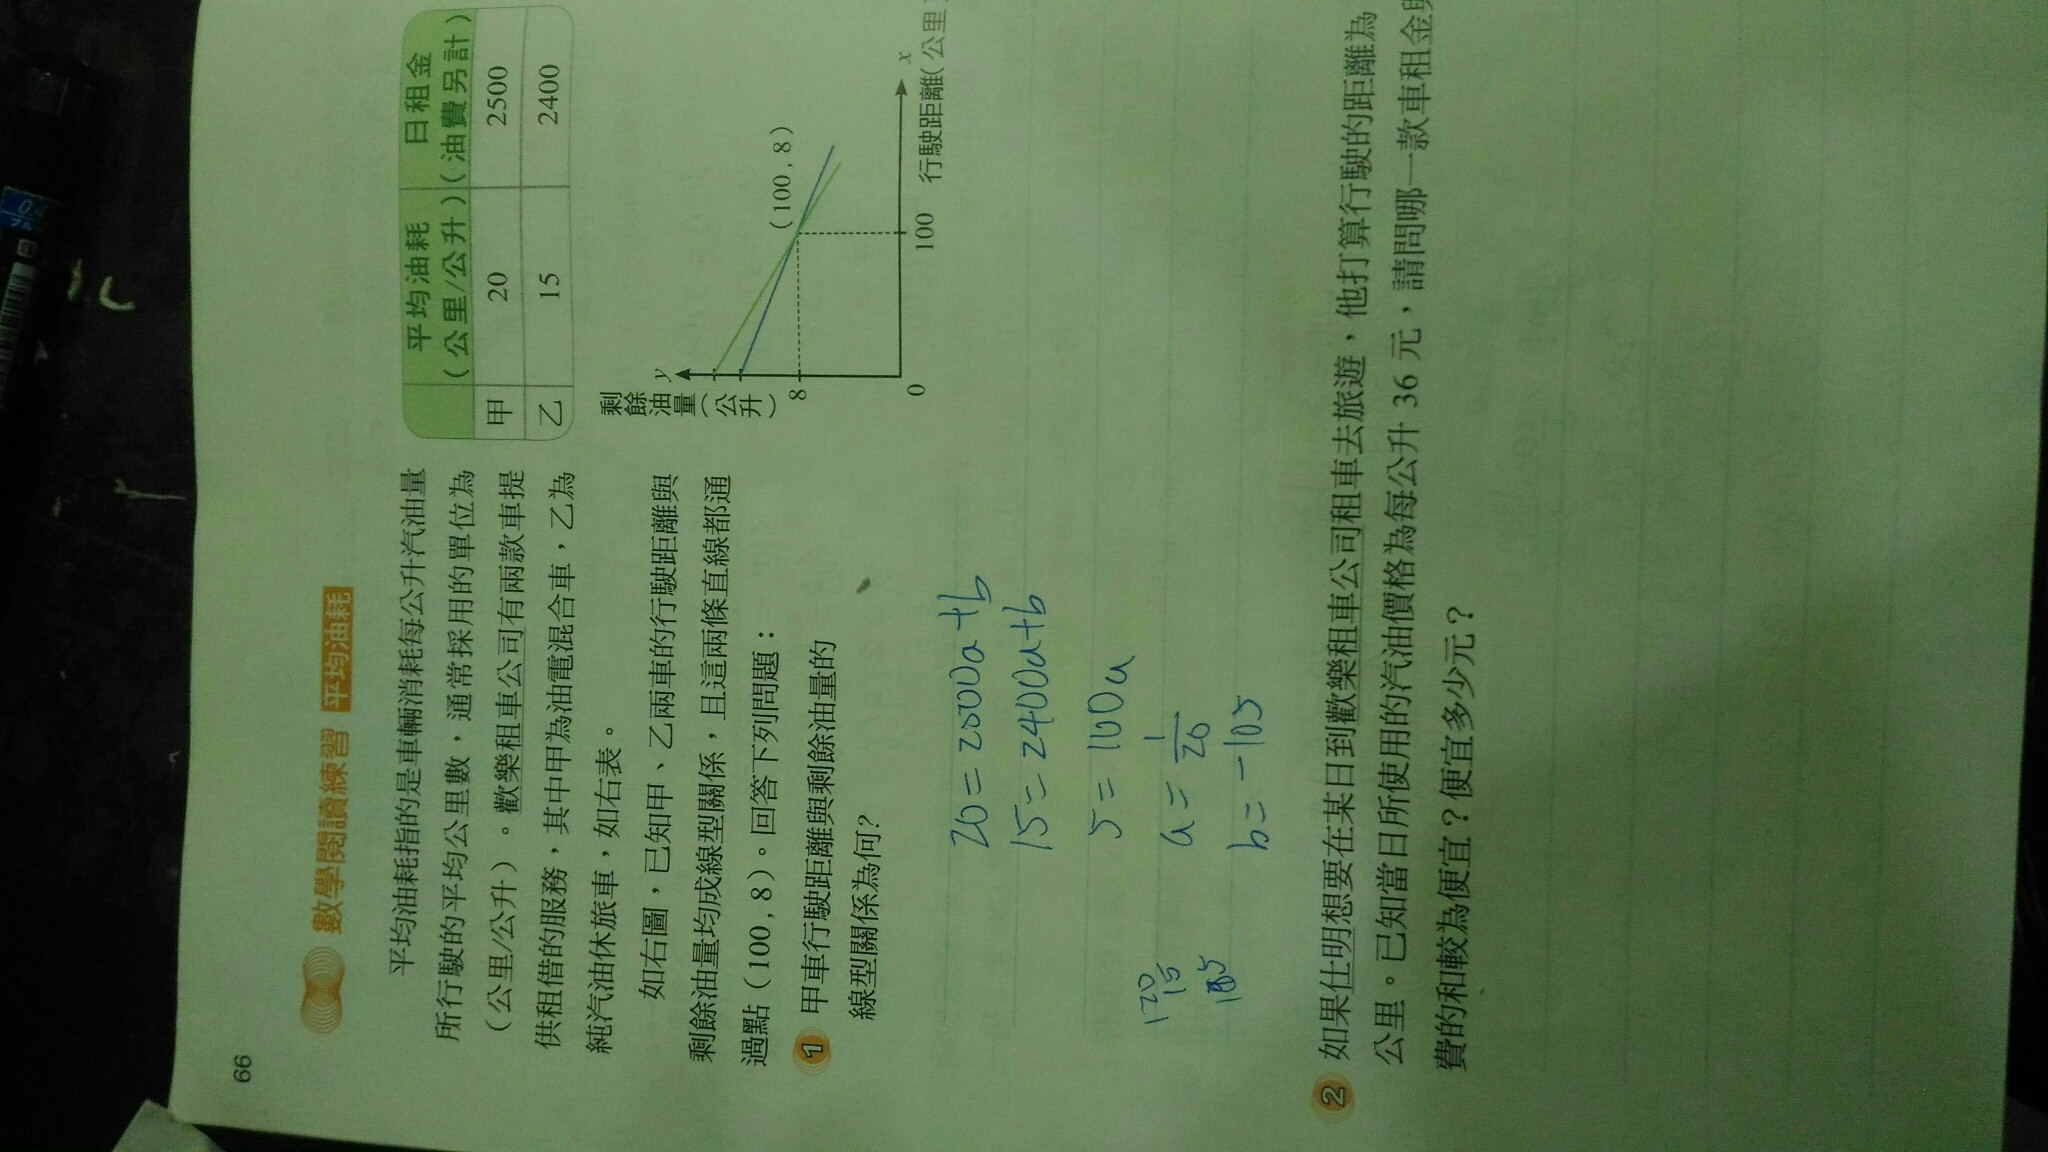 66
數學閱讀練習 平均油耗
平均油耗指的是車輛消耗每公升汽油量
所行駛的平均公里數，通常採用的單位為
（公里/公升）。歡樂租車公司有兩款車提
供租借的服務，其中甲為油電混合車，乙為
純汽油休旅車，如右表。
如右圖，已知甲、乙兩車的行駛距離與
剩餘油量均成線型關係，且這兩條直線都通
過點（100, 8）。回答下列問題：
平均油耗 日租金
（公里/公升） （油費另計）
甲 20 2500
乙 15 2400
剩餘油量（公升）
y
(100, 8)
8
0
100
x
行駛距離（公里）
1 甲車行駛距離與剩餘油量的
線型關係為何？
20=2500a+b
15=2400a+b
5=100a
a=1/20
b=-105
120
15
2 如果仕明想要在某日到歡樂租車公司租車去旅遊，他打算行駛的距離為
公里。已知當日所使用的汽油價格為每公升 36 元，請問哪一款車租金
費的和較為便宜？便宜多少元？